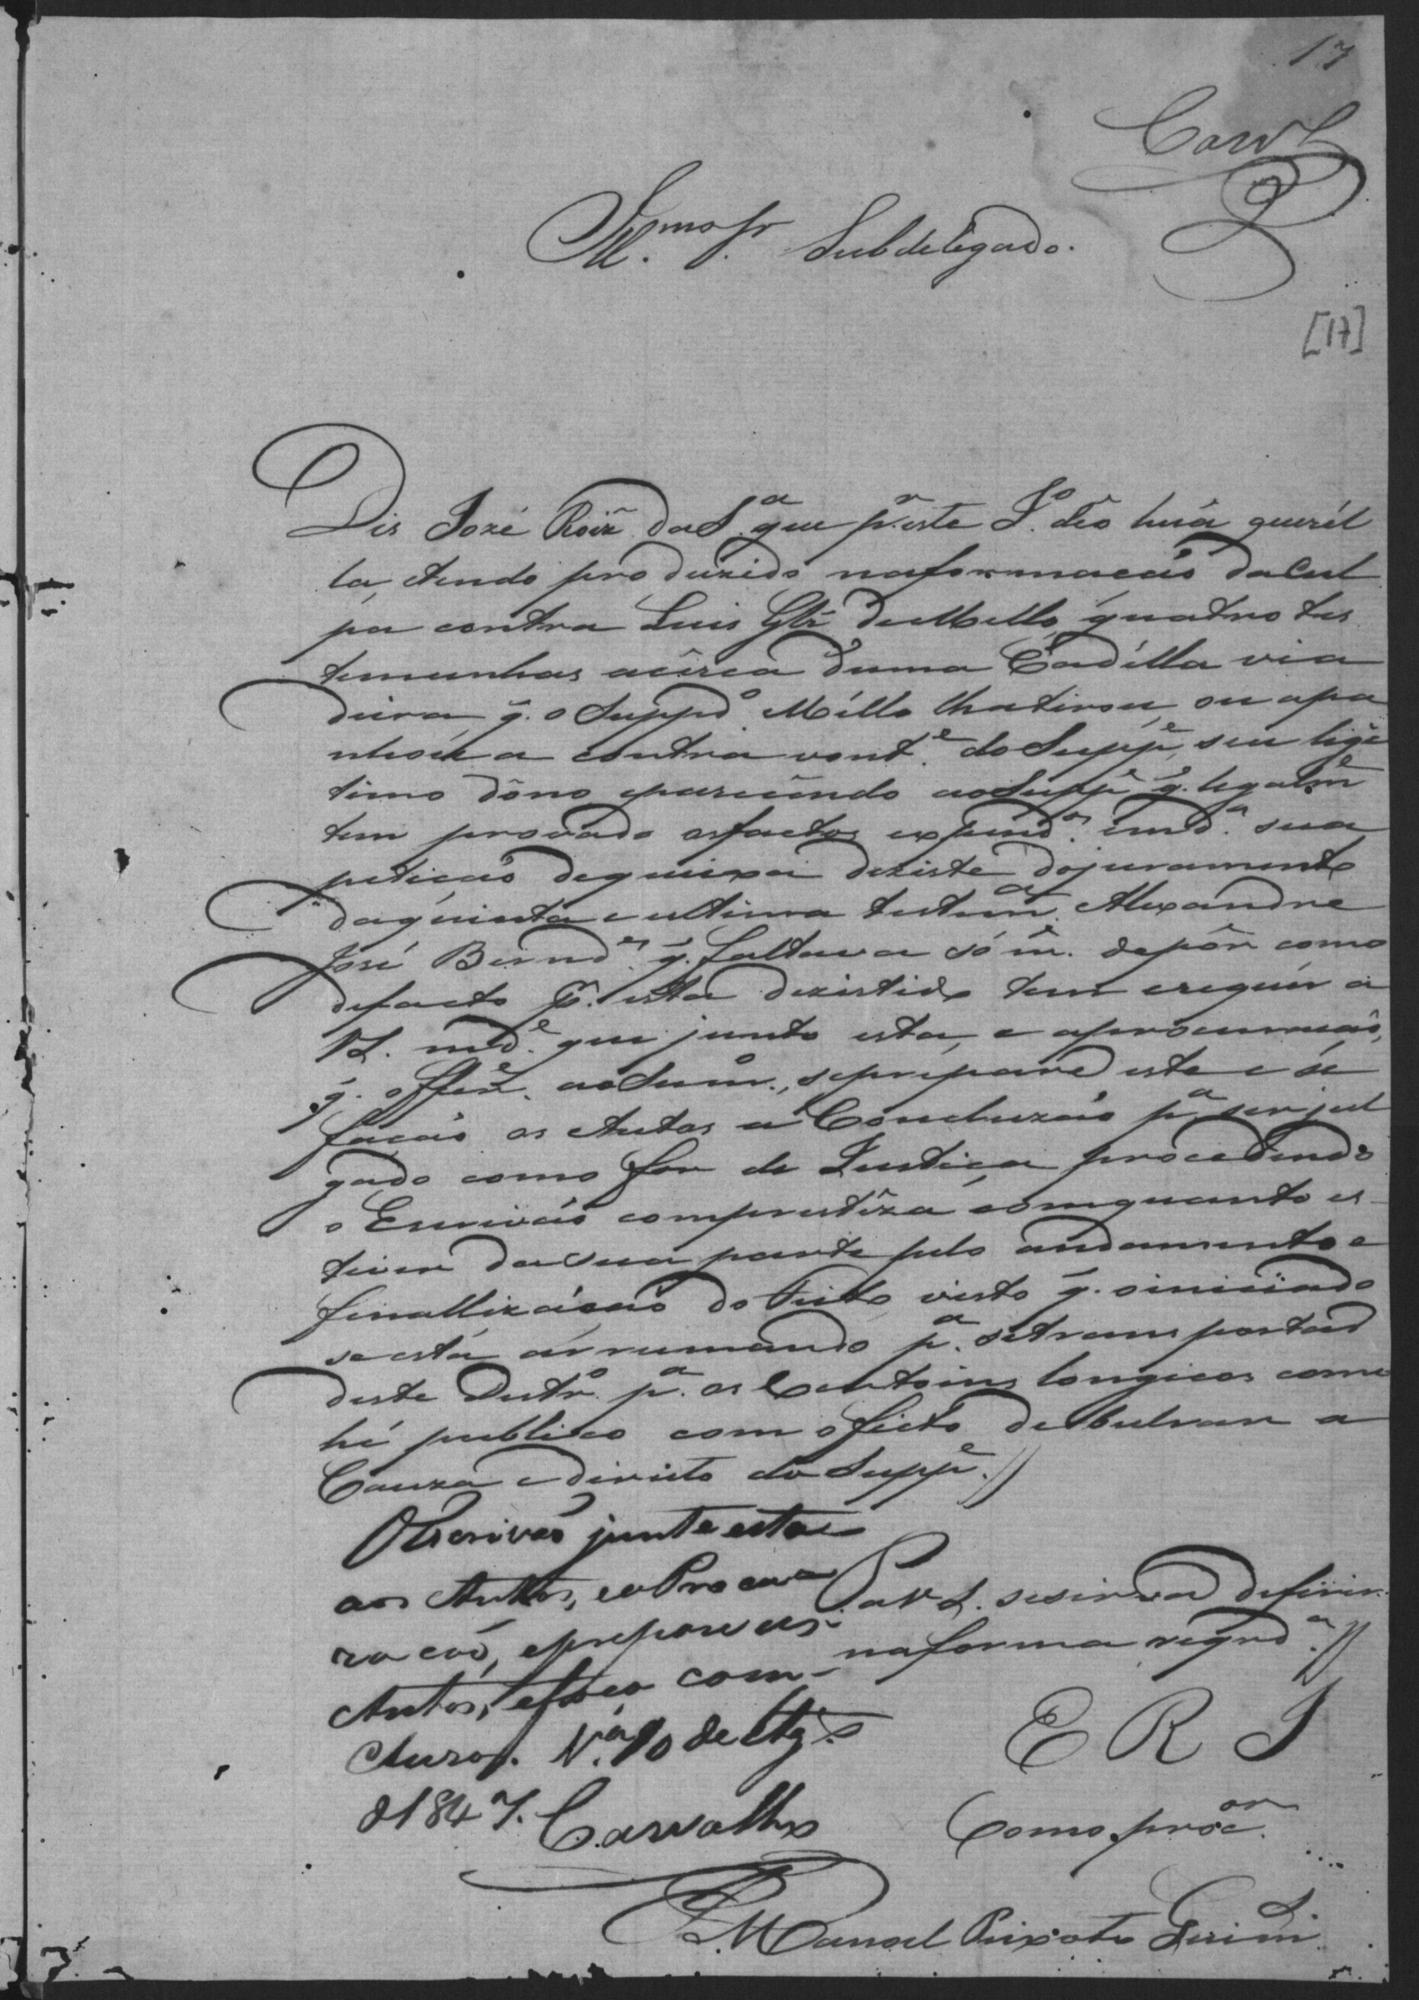 17
Carvº
Illmo Sr. Subdelegado.
[17]
Dis José Roiz̃ da S.ª que p.r este J.º deo huã querél
la, tendo produzido na formacaõ da Cul
pa contra Luis Glz̃ de Mello quatro tes
temunhas acêrca d'uma Cadélla via
deira q̃. o Suppdº. Méllo lha tirou, ou apa
nhou a contra vont.e do Supp.e, seu ligi
timo dôno e parecendo ao Supp.e q̃. legalm.e
tem provado os factos expend.os em d.ª sua
peticaõ de queixa deziste do juramento
da quinta e ultima testem.ª Alexandre
José Bernd.es q̃. faltava só m.e depôr como
de facto p.r esta dezistido tem e requer a
V.S. md.e que junto esta, e a procuracaõ,
q̃. offer.e ao Sum.º, se prepare este e se
facaõ os Autos a Concluzaõ p.ª ser jul
gado como for de Justiça procedendo
o Escrivaõ com prestêza emquanto es
tiver da sua parte pelo andamento e
finallizacaõ do feito visto q̃. o iniciado
se está arrumando p.ª se transportar
deste Distr.º p.ª os Certoins longicos como
hé publico com o ficto de bulrar a
Cauza e direito do Supp.e //
O Escrivaõ junte esta
aos Autos, e a Procu
racaõ, e prepare os
Autos, e faca com-
cluzos. V.ª 10 de Ag.to
d 1847. Carvalho
P. a V.S. se sirva deferir
na forma reqrd.ª //
E R J
Como proc.or
Manoel Peixoto